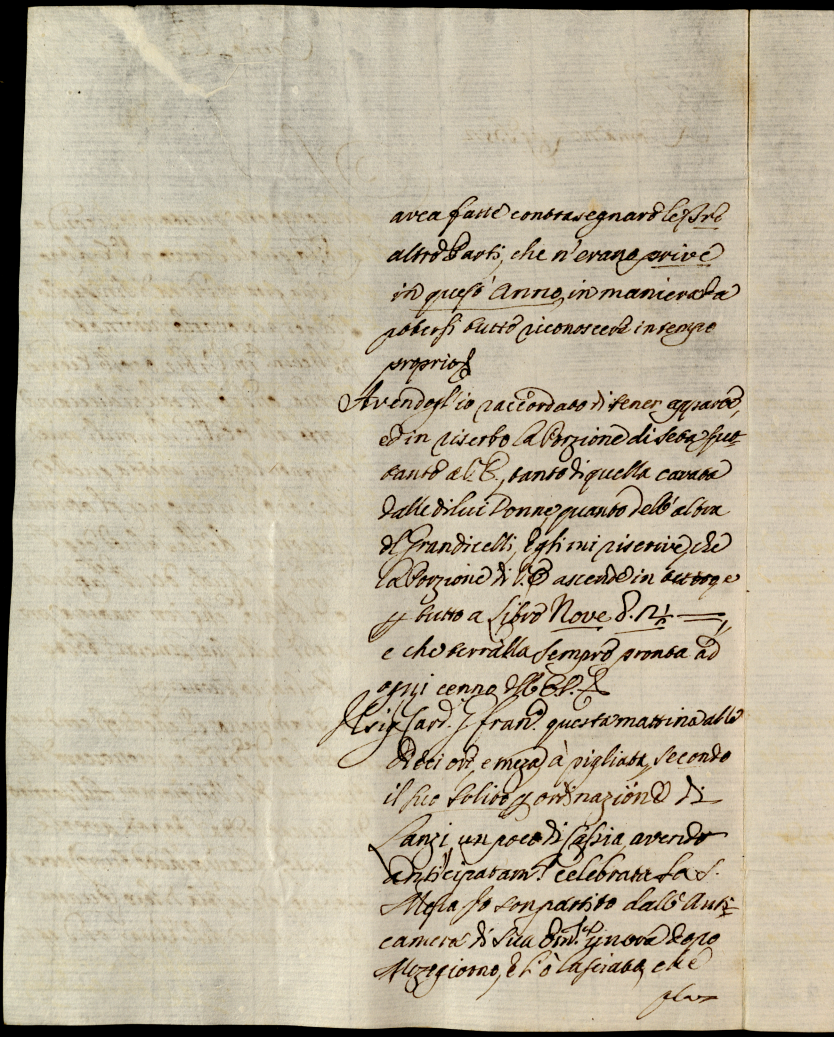 avea fatte contrasegnare le
altre Parti, che n'erano prive
in quest'Anno, in maniera da
potersi tutto riconoscere in tempo
proprio
Avendogl'io raccordato di tener apparte,
ed in riserbo la Porzione di Seta
tanto di quella cavata
dalle di lui Donne, quanto dell'altra
de Grandicelli, Egli mi riscrive, che
la Porzione di ascende in
tutto a Libre Nove
e che terralla sempre pronta ad
ogni cenno
Il Sig. Card. Fran. questa mattina alle
dieci ore, e meza à pigliata, secondo
il suo solito ordinazione di
Lanzi, un poco di Cassia, avendo
anticipatam.te celebrata la S.
Messa Io son partito dall'Anti-
camera di Sua Em. un'ora dopo
Mezzogiorno, e l'ò lasciata, che